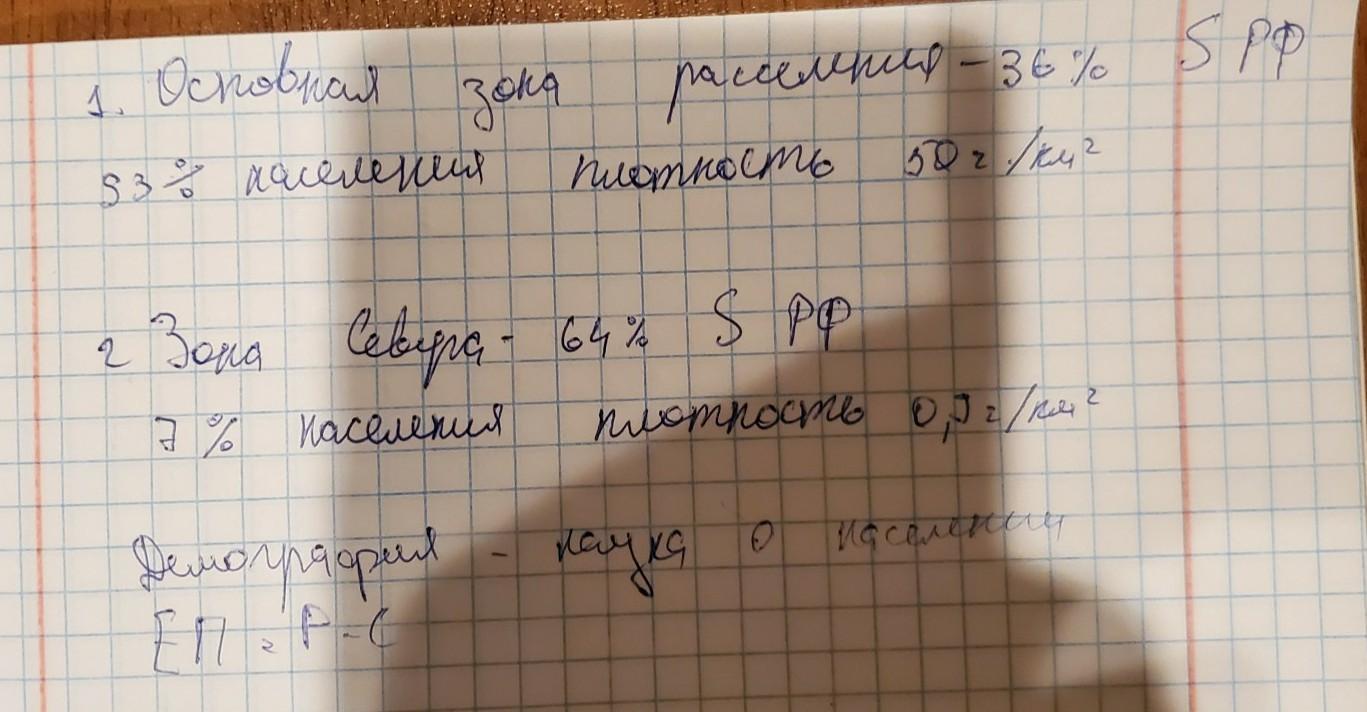 1. Основная зона расселения - 36% S РФ
93% населения плотность 50 ч/км²
2 Зона Севера - 64% S РФ
7% населения плотность 0,9 ч/км²
Демография - наука о населении
ЕП = Р - С